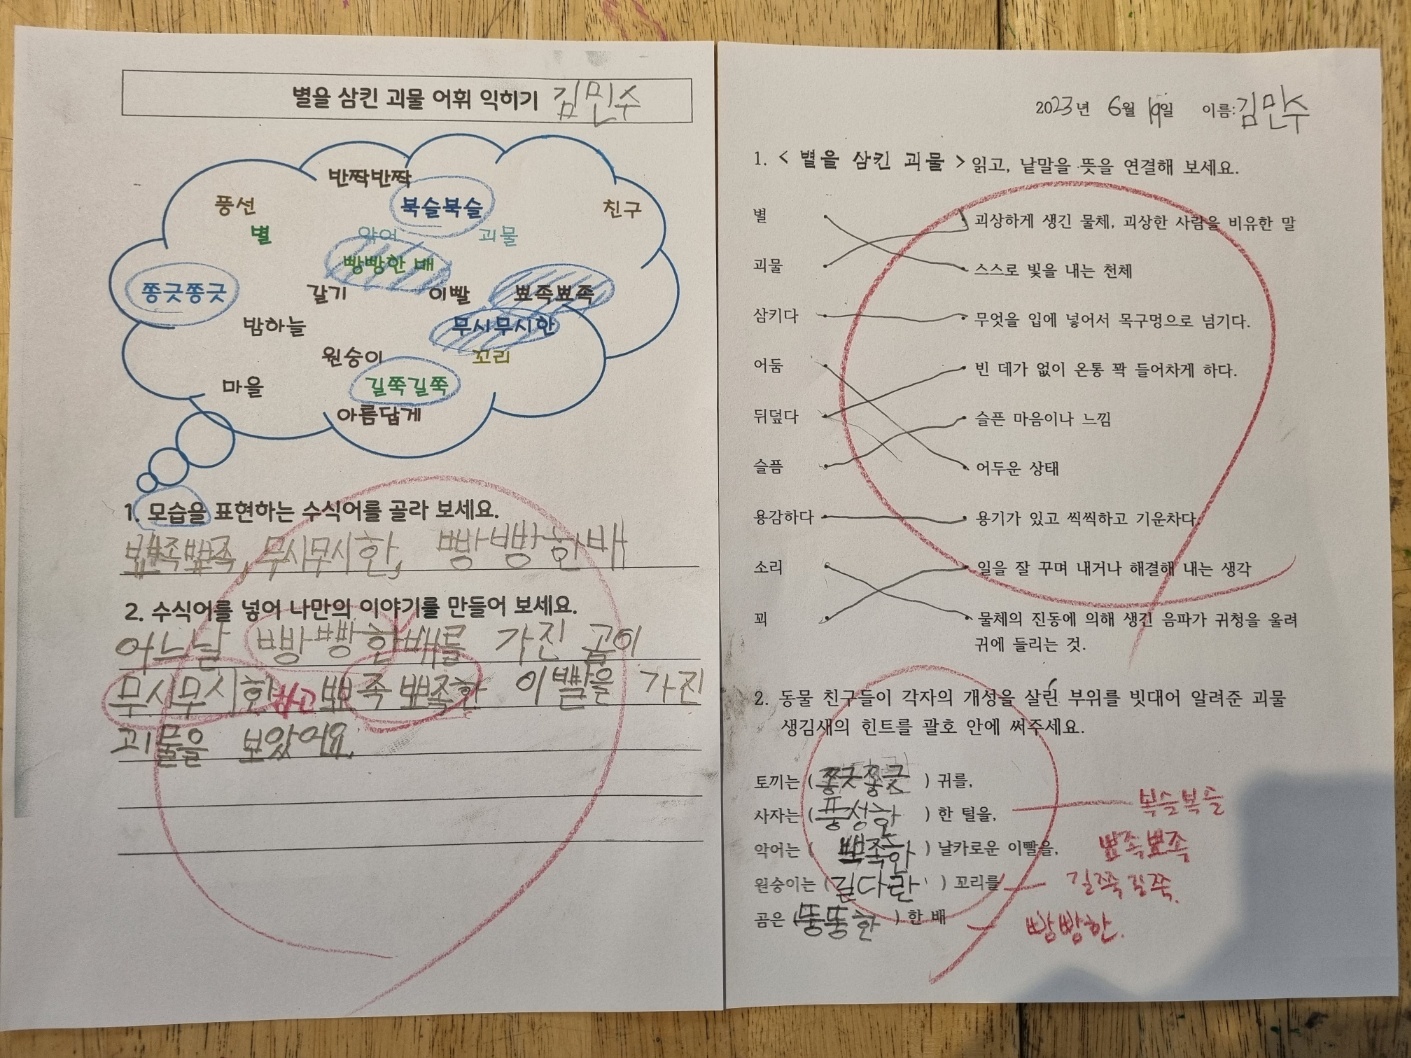 별을 삼킨 괴물 어휘 익히기 김민수
반짝반짝
풍선 북슬북슬 친구
별 악어 괴물
빵빵한 배
쫑긋쫑긋 갈기 이빨 뾰족뾰족
밤하늘 무시무시한
원숭이 꼬리
마을 길쭉길쭉
아름답게
1. 모습을 표현하는 수식어를 골라 보세요.
뾰족뾰족, 무시무시한, 빵빵한배
2. 수식어를 넣어 나만의 이야기를 만들어 보세요.
어느날 빵빵한배를 가진 곰이
무시무시한 하고 뾰족뾰족한 이빨을 가진
괴물을 보았어요.
2023년 6월 19일 이름:김민수
1. < 별을 삼킨 괴물 > 읽고, 낱말을 뜻을 연결해 보세요.
별 괴상하게 생긴 물체, 괴상한 사람을 비유한 말
괴물 스스로 빛을 내는 천체
삼키다 무엇을 입에 넣어서 목구멍으로 넘기다.
어둠 빈 데가 없이 온통 꽉 들어차게 하다.
뒤덮다 슬픈 마음이나 느낌
슬픔 어두운 상태
용감하다 용기가 있고 씩씩하고 기운차다.
소리 일을 잘 꾸며 내거나 해결해 내는 생각
꾀 물체의 진동에 의해 생긴 음파가 귀청을 울려
귀에 들리는 것.
2. 동물 친구들이 각자의 개성을 살린 부위를 빗대어 알려준 괴물
생김새의 힌트를 괄호 안에 써주세요.
토끼는 (쫑긋쫑긋) 귀를,
사자는 (풍성한) 한 털을, 복슬복슬
악어는 (뾰족한) 날카로운 이빨을, 뾰족뾰족
원숭이는 (길다란) 꼬리를 길쭉길쭉.
곰은 (뚱뚱한) 한 배 빵빵한.